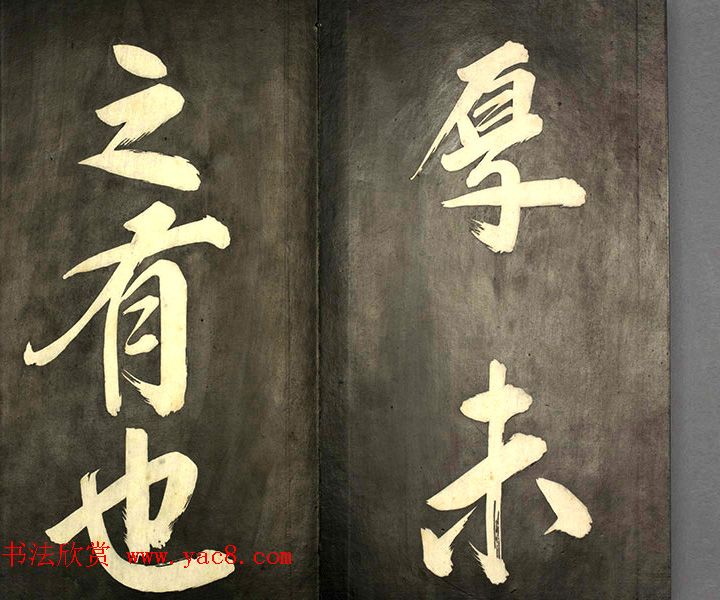 厚未
之有也
书法欣赏 www.yac8.com